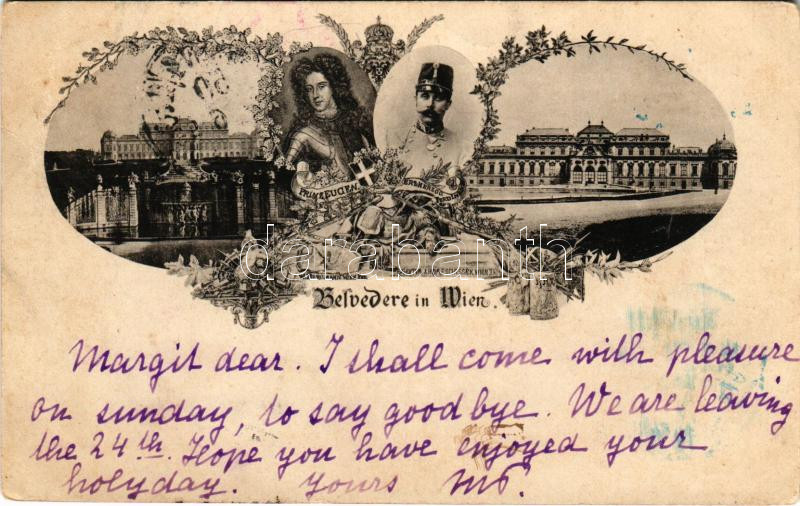 PRINZ EUGEN
darabanth
Belvedere in Wien.
Margit dear. I shall come with pleasure
on sunday, to say good bye. We are leaving
the 24th. Hope you have enjoyed your
holyday. Yours